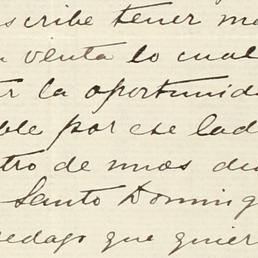 scribe tener ma
venta lo cual
ar la oportunida
ble por ese lad
tro de unos dia
Santo Doming
que quier